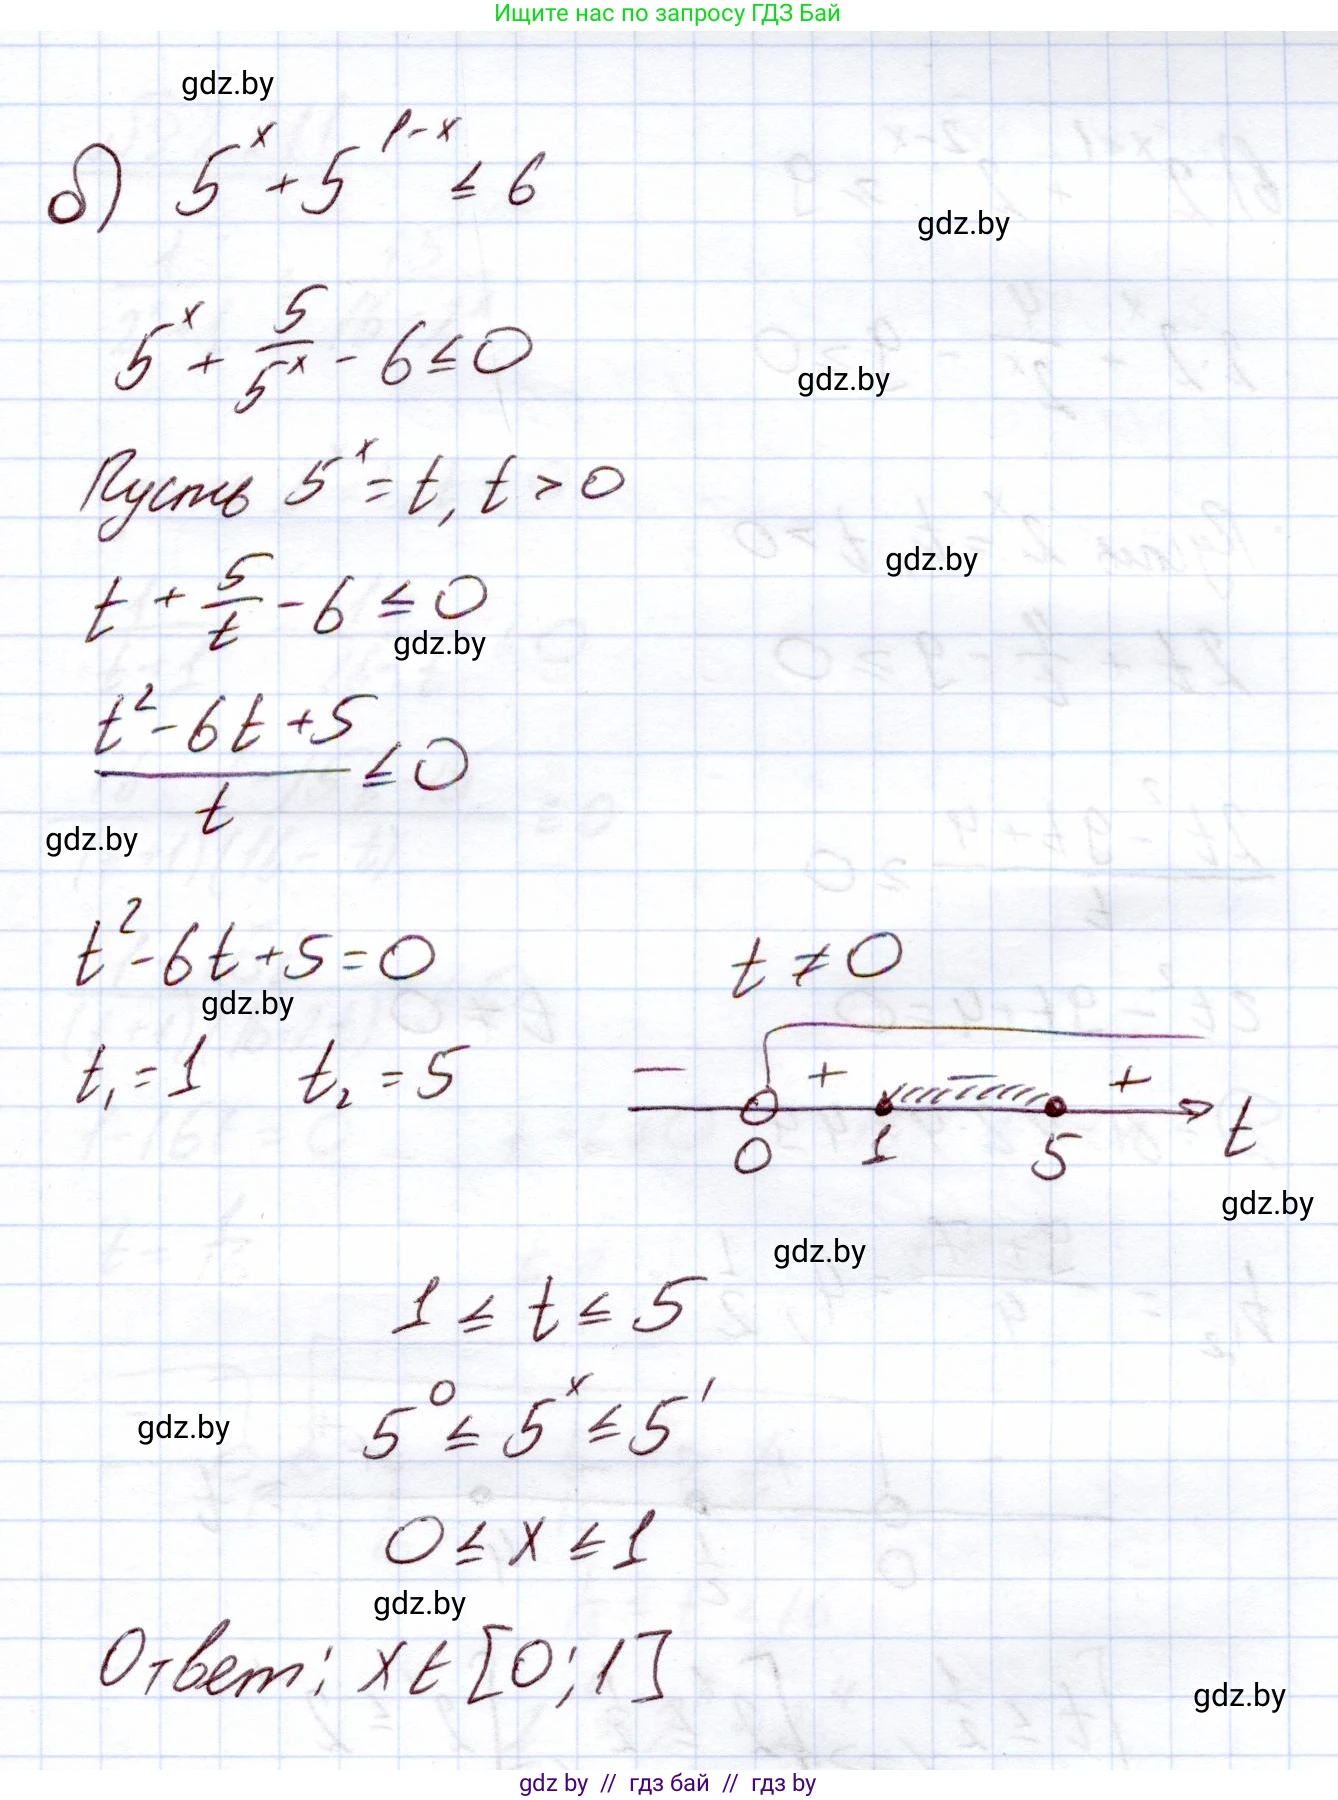 Ищите нас по запросу ГДЗ Бай
gdz.by
б) 5^x + 5^(1-x) ≤ 6
gdz.by
5^x + 5/5^x - 6 ≤ 0
gdz.by
Пусть 5^x = t, t > 0
gdz.by
t + 5/t - 6 ≤ 0
gdz.by
(t^2 - 6t + 5)/t ≤ 0
gdz.by
t^2 - 6t + 5 = 0 t ≠ 0
gdz.by
t₁ = 1 t₂ = 5
− + − +
0 1 5 t
gdz.by
gdz.by
1 ≤ t ≤ 5
5^0 ≤ 5^x ≤ 5^1
gdz.by
0 ≤ x ≤ 1
gdz.by
Ответ: x ∈ [0; 1]
gdz.by
gdz by // гдз бай // гдз by